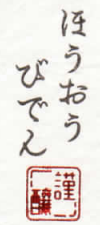 ほうおう
びでん
謹醸